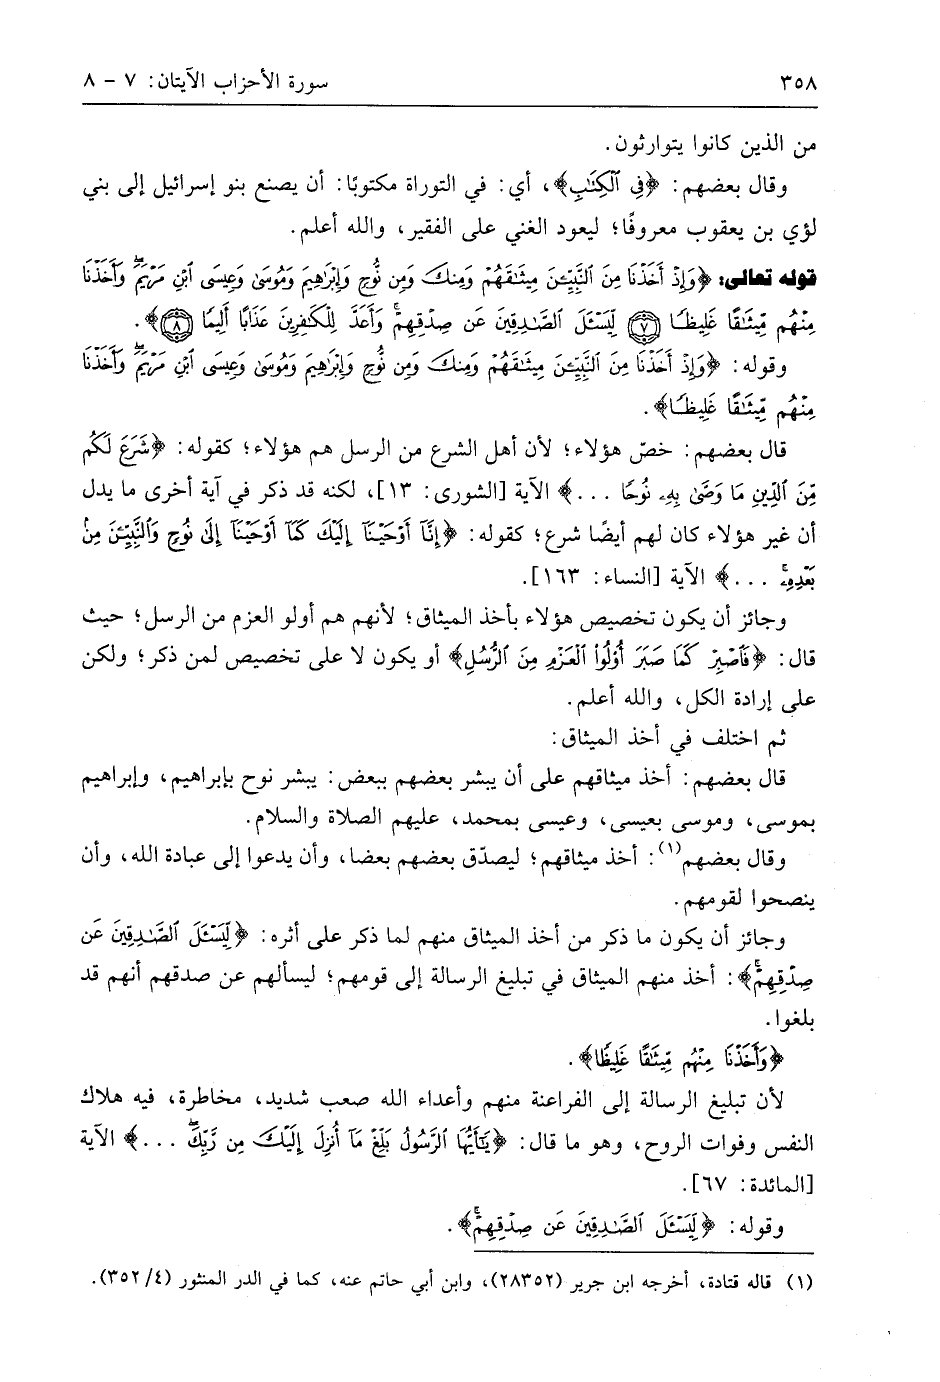 ٣٥٨ سورة الأحزاب الآيتان: ٧ - ٨
من الذين كانوا يتوارثون.
وقال بعضهم: ﴿فِي ٱلْكِتَٰبِ﴾، أي: في التوراة مكتوبًا: أن يصنع بنو إسرائيل إلى بني
لؤي بن يعقوب معروفًا؛ ليعود الغني على الفقير، والله أعلم.
قوله تعالى: ﴿وَإِذْ أَخَذْنَا مِنَ ٱلنَّبِيِّـۧنَ مِيثَٰقَهُمْ وَمِنكَ وَمِن نُّوحٍ وَإِبْرَٰهِيمَ وَمُوسَىٰ وَعِيسَى ٱبْنِ مَرْيَمَۖ وَأَخَذْنَا
مِنْهُم مِّيثَٰقًا غَلِيظًا ﴿٧﴾ لِّيَسْـَٔلَ ٱلصَّٰدِقِينَ عَن صِدْقِهِمْۚ وَأَعَدَّ لِلْكَٰفِرِينَ عَذَابًا أَلِيمًا ﴿٨﴾﴾.
وقوله: ﴿وَإِذْ أَخَذْنَا مِنَ ٱلنَّبِيِّـۧنَ مِيثَٰقَهُمْ وَمِنكَ وَمِن نُّوحٍ وَإِبْرَٰهِيمَ وَمُوسَىٰ وَعِيسَى ٱبْنِ مَرْيَمَۖ وَأَخَذْنَا
مِنْهُم مِّيثَٰقًا غَلِيظًا﴾.
قال بعضهم: خصّ هؤلاء؛ لأن أهل الشرع من الرسل هم هؤلاء؛ كقوله: ﴿شَرَعَ لَكُم
مِّنَ ٱلدِّينِ مَا وَصَّىٰ بِهِۦ نُوحًا ...﴾ الآية [الشورى: ١٣]، لكنه قد ذكر في آية أخرى ما يدل
أن غير هؤلاء كان لهم أيضًا شرع؛ كقوله: ﴿إِنَّآ أَوْحَيْنَآ إِلَيْكَ كَمَآ أَوْحَيْنَآ إِلَىٰ نُوحٍ وَٱلنَّبِيِّـۧنَ مِنۢ
بَعْدِهِۦۚ ...﴾ الآية [النساء: ١٦٣].
وجائز أن يكون تخصيص هؤلاء بأخذ الميثاق؛ لأنهم هم أولو العزم من الرسل؛ حيث
قال: ﴿فَٱصْبِرْ كَمَا صَبَرَ أُوْلُواْ ٱلْعَزْمِ مِنَ ٱلرُّسُلِ﴾ أو يكون لا على تخصيص لمن ذكر؛ ولكن
على إرادة الكل، والله أعلم.
ثم اختلف في أخذ الميثاق:
قال بعضهم: أخذ ميثاقهم على أن يبشر بعضهم ببعض: يبشر نوح بإبراهيم، وإبراهيم
بموسى، وموسى بعيسى، وعيسى بمحمد، عليهم الصلاة والسلام.
وقال بعضهم(١): أخذ ميثاقهم؛ ليصدّق بعضهم بعضا، وأن يدعوا إلى عبادة الله، وأن
ينصحوا لقومهم.
وجائز أن يكون ما ذكر من أخذ الميثاق منهم لما ذكر على أثره: ﴿لِّيَسْـَٔلَ ٱلصَّٰدِقِينَ عَن
صِدْقِهِمْۚ﴾: أخذ منهم الميثاق في تبليغ الرسالة إلى قومهم؛ ليسألهم عن صدقهم أنهم قد
بلغوا.
﴿وَأَخَذْنَا مِنْهُم مِّيثَٰقًا غَلِيظًا﴾.
لأن تبليغ الرسالة إلى الفراعنة منهم وأعداء الله صعب شديد، مخاطرة، فيه هلاك
النفس وفوات الروح، وهو ما قال: ﴿يَٰٓأَيُّهَا ٱلرَّسُولُ بَلِّغْ مَآ أُنزِلَ إِلَيْكَ مِن رَّبِّكَۖ ...﴾ الآية
[المائدة: ٦٧].
وقوله: ﴿لِّيَسْـَٔلَ ٱلصَّٰدِقِينَ عَن صِدْقِهِمْۚ﴾.
(١) قاله قتادة، أخرجه ابن جرير (٢٨٣٥٢)، وابن أبي حاتم عنه، كما في الدر المنثور (٣٥٢/٤).